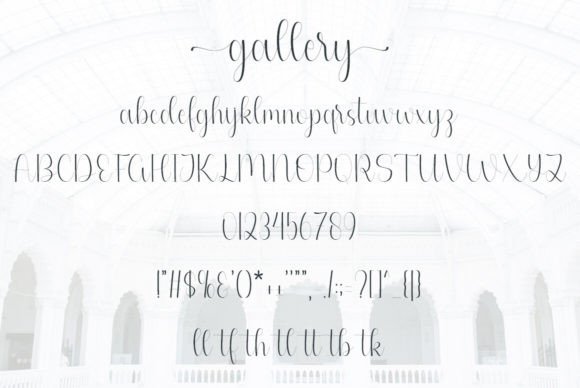 gallery
abcdefghijklmnopqrstuvwxyz
ABCDEFGHIJKLMNOPQRSTUVWXYZ
0123456789
!"#$%&'()*+,''"", ./:;=?[]'_{|}
ll tf th tl tt tb tk